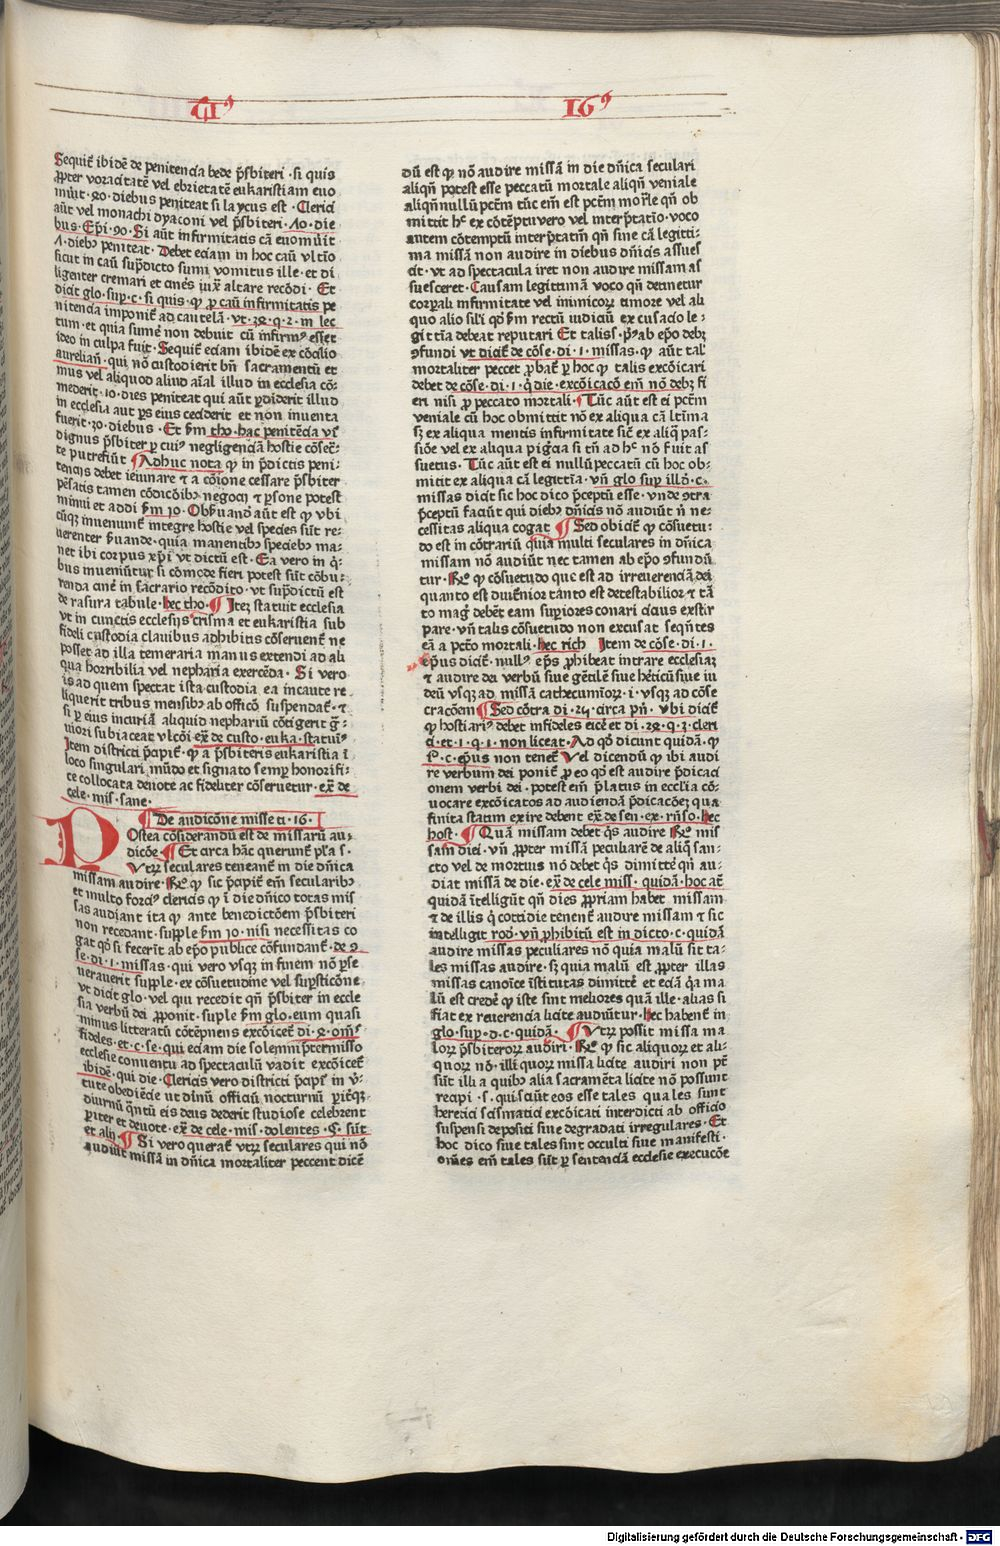 Tiꝰ 16ꝰ
Sequit̃ ibidẽ de penitencia bede p̃sbiteri · si quis
ꝓpter voracitatẽ vel ebrietatẽ eukaristiam euo
mũit · 40 · diebus peniteat si laycus est · Clerici
aũt vel monachi dyaconi vel p̃sbiteri · Λ0 · die
bus · Ep̃i · 90 · Si aũt infirmitatis cã euomũit
Λ · dieb⁹ peniteat · Debet eciam in hoc caũ vltĩo
sicut in caũ sup̃dicto sumi vomitus ille · et di
ligenter cremari et cinẽs iux̃ altare recõdi · Et
dicit glo · sup · c · si quis · ꝙ ꝓ caũ infirmitatis pe
nitencia imponit̃ ad cautelã · vt · 29 · q · 2 · in lec
tum · et quia sumẽ non debuit cũ infirm⁹ esset
ideo in culpa fuit · Sequit̃ eciam ibidẽ ex cõcilio
aurelian̄ · qui nõ custodierit bñ sacramentũ et
mus vel aliquod aliud aĩal illud in ecclesia cõ⸗
mederit · 10 · dies peniteat qui aũt ꝑdiderit illud
in ecclesia aut ꝑs eius ceciderit et non inuenta
fuerit · 30 · diebus · Et s̃m tho · hac penitẽcia vr̃
dignus p̃sbiter ꝑ cui⁹ negligenciã hostie cõsec̃⸗
te putrefiũt ¶ Adhuc nota ꝙ in p̃dictis peni⸗
tencijs debet ieiunare ⁊ a cõione cessare p̃sbiter
pẽsatis tamen cõdicõib⁹ negocij ⁊ ꝑsone potest
minui et addi s̃m jo · Obp̃uand̃ aũt est ꝙ vbi
cũqꝫ inueniunt̃ integre hostie vel species sũt re⸗
uerenter p̃uande · quia manentib⁹ specieb⁹ ma⸗
net ibi corpus xp̃i vt dictũ est · Ea vero in q̃⸗
bus inueniũtur si cõmode fieri potest sũt cõbu⸗
renda cinẽ in sacrario recõdito · vt sup̃dictũ est
de rasura tabule · hec tho · ¶ Iteꝫ statuit ecclesia
vt in cunctis ecclesijs crisma et eukaristia sub
fideli custodia clauibus adhibitis cõseruent̃ ne
posset ad illa temeraria manus extendi ad ali
qua horribilia vel nepharia exercẽda · Si vero
is ad quem spectat ista custodia ea incaute re⸗
liquerit tribus mensib⁹ ab officõ suspendat̃ · ⁊
si ꝑ eius incuriã aliquid nephariũ cõtigerit g̃⸗
uiori subiaceat vlcõi · ex̃ de custo · eu ka · statuĩ⁹
Item districti p̃apit̃ · ꝙ a p̃sbiteris eukaristia ĩ
loco singulari mũdo et signato semꝑ honorifi⸗
ce collocata deuote ac fideliter cõseruetur · ex̃ de
cele · mis · sane ·
¶ De audicõne misse ti · 16 ·
POstea cõsiderandũ est de missarũ au⸗
dicõe · ¶ Et circa hãc querunt̃ pl̃a · s̃ ·
Vtrꝫ seculares teneant̃ in die dñica
missam audire · R̃o ꝙ sic p̃apit̃ em̃ secularib⁹
et multo forci⁹ clericis ꝙ ĩ die dñico totas mis
sas audiant ita ꝙ ante benedictõem p̃sbiteri
non recedant · supple s̃m jo · nisi necessitas co
gat qõ si fecerĩt ab ep̃o publice cõfundant̃ · de 9
se · di · 1 · missas · qui vero vsqꝫ in finem nõ p̃se
uerauerit supple · ex cõsuetudine vel sup̃sticõne
vt dicit glo · vel qui recedit qñ p̃sbiter in eccle
sia verbũ dei ꝓponit · suple s̃m glo · eum quasi
minus litteratũ cõtẽpnens excõicet̃ di · 4 · om̃s
fideles · et · c · se · qui eciam die solemni p̃termisso
ecclesie conuentu ad spectaculũ vadit excõicet̃
ibidẽ · qui die · Clericis vero districti p̃apit̃ in v̓⸗
tute obediẽcie ut diñu officiũ nocturnũ pariẽqꝫ
diurnũ q̃ntũ eis deus dederit studiose celebrent
ꝑiter et deuote · ex̃ de cele · mis · dolentes · §. sũt
et alij ¶ Si vero querat̃ vtrꝫ seculares qui nõ
audiũt missã in dñica mortaliter peccent dicẽ
dũ est ꝙ nõ audire missã in die dñica seculari
aliqñ potest esse peccatũ mortale aliqñ veniale
aliqñ nullũ pctm̃ tũc em̃ est pctm̃ mor̃le qñ ob
mittit hᶜ ex cõtẽptu vero vel interp̃tatĩo · voco
autem cõtemptũ interp̃tatim̃ qñ sine cã legitti⸗
ma missã non audire in diebus dñicis assues
cit · vt ad spectacula iret non audire missam as
suesceret · Causam legittimã voco qñ detinetur
corꝑali infirmitate vel inimicoꝝ timore vel ali
quo alio sil̃i qõ s̃m rectũ iudiciũ excusacio le⸗
gittĩa debeat reputari Et talis s̃ · p̃⁹ ab ep̃o debꝫ
9fundi vt dicit̃ de cõse · di · 1 · missas · ꝙ aũt tal̓
mortaliter peccet ꝓbat̃ ꝑ hoc ꝙ talis excõicari
debet de cõse · di · 1 · q̃ die · excõicacõ em̃ nõ debꝫ fi
eri nisi ꝓ peccato mortali · ¶ Tũc aũt est ei pctm̃
veniale cũ hoc obmittit nõ ex aliqua cã ltĩma
sꝫ ex aliqua mentis infirmitate sic̃ ex aliq̃ pas⸗
siõe vel ex aliqua pig̃cia si tñ ad hᶜ nõ fuit as
suetus · Tũc aũt est ei nullũ peccatũ cũ hoc ob⸗
mitit ex aliqua cã legittĩa · vñ glo sup illõ · c ·
missas dicit sic hoc dico p̃ceptũ esse · vnde 9tra
p̃ceptum faciũt qui dieb⁹ dñicis nõ audiũt ñ ne⸗
cessitas aliqua cogat ¶ Sed obicit̃ ꝙ cõsuetu⸗
do est in cõtrariũ quia multi seculares in dñica
missam nõ audiũt nec tamen ab ep̃o 9fundũ
tur · R̃o ꝙ cõsuetudo que est ad irreuerenciã dei
quanto est diuturnior tanto est detestabilior ⁊ tã
to mag̃ debẽt eam suꝑiores conari citius exstir
pare · vñ talis cõsuetudo non excusat seqñtes
eã a pctõ mortali · hec rich Item de cõse · di · 1 ·
ep̃us dicit̃ · null⁹ ep̃s ꝓhibeat intrare ecclesiaꝫ
⁊ audire dei verbũ siue gẽtilẽ siue hẽticũ siue iu
deũ vsqꝫ ad missã cathecuminoꝝ · i · vsqꝫ ad cõse
cracõem ¶ Sed cõtra di · 24 · circa pñ · vbi dicit̃
ꝙ hostiari⁹ debet infideles eicẽ et di · 29 · q · 2 · cleri
ci · et · 1 · q · 1 · non liceat · Ad qõ dicunt quidã · ꝙ
i · c · ep̃us non tenet̃ Vel dicendũ ꝙ ibi audi
re verbum dei ponit̃ ꝓ eo qõ est audire p̃dicaci
onem verbi dei · potest em̃ p̃latus in ecclia cõ⸗
uocare excõicatos ad audiendã p̃dicacõeꝫ qua
finita statim exire debent ex̃ de sen · ex · rñso · hec
host · ¶ Quã missam debet q̃s audire R̃o mis
sam diei · vñ ꝓpter missã peculiarẽ de aliq̃ san⸗
cto vel de mortuis nõ debet q̃s dimittẽ qñ au⸗
diat missã de die · ex̃ de cele miss · quidã · hoc ac̃
quidã ĩtelligũt qñ dies ꝓpriam habet missam
⁊ de illis q̃ cottidie tenent̃ audire missam ⁊ sic
intelligit rod̃ · vñ ꝓhibitũ est in dicto · c · quidã
audire missas peculiares nõ quia malũ sit ta⸗
les missas audire · sꝫ quia malũ est ꝓpter illas
missas canoĩce ĩstitutas dimittẽ et eciã q̃a ma
lũ est credẽ ꝙ iste sint meliores quã ille · alias si
fiat ex reuerencia licite audiũtur · hec habent̃ in
glo · sup · d · c · quidã · ¶ Vtrꝫ possit missa ma
loꝝ p̃sbiteroꝝ audiri · R̃o ꝙ sic aliquoꝝ et ali⸗
quoꝝ nõ · illi quoꝝ missa licite audiri non pt̃
sũt illi a quib⁹ alia sacramẽta licite nõ possunt
recipi · s · qui sciũt eos esse tales quales sunt
heretici scismatici excõicati interdicti ab officio
suspensi depositi siue degradati irregulares · Et
hoc dico siue tales sint occulti siue manifesti ·
om̃es em̃ tales sũt ꝑ sentenciã ecclesie execucõe
Digitalisierung gefördert durch die Deutsche Forschungsgemeinschaft - DFG